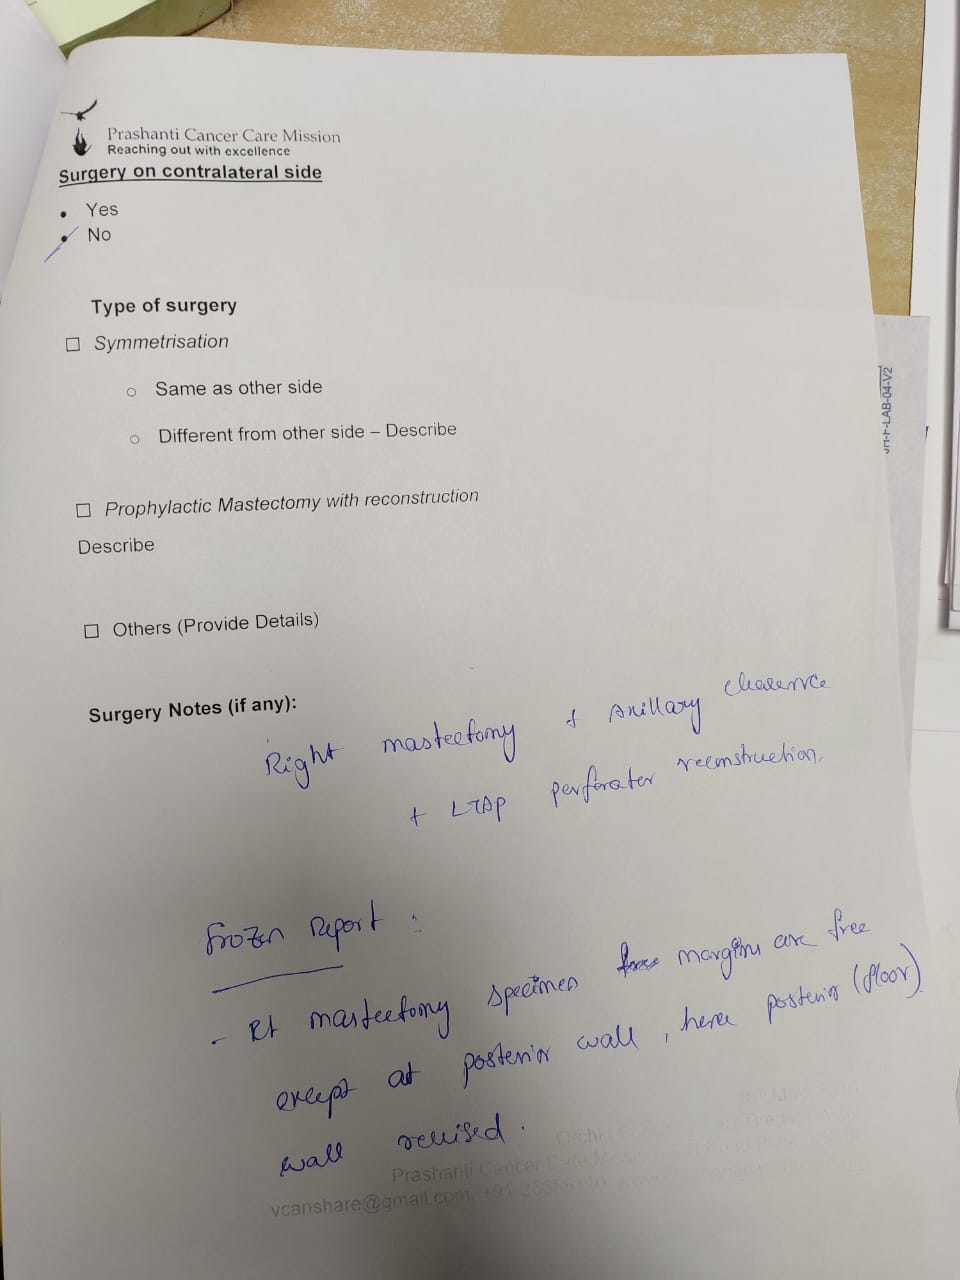 Prashanti Cancer Care Mission
Reaching out with excellence
Surgery on contralateral side
• Yes
• No
Type of surgery
□ Symmetrisation
○ Same as other side
○ Different from other side – Describe
□ Prophylactic Mastectomy with reconstruction
Describe
□ Others (Provide Details)
Surgery Notes (if any):
Right mastectomy + Axillary clearence
+ LTAP perforater reconstruction,
Frozen Report :
- Rt mastectomy specimen margins are free
except at posterior wall, hence posterior (floor)
wall revised.
Prashanti Cancer Care Mission
vcanshare@gmail.com
LAB-04-V2